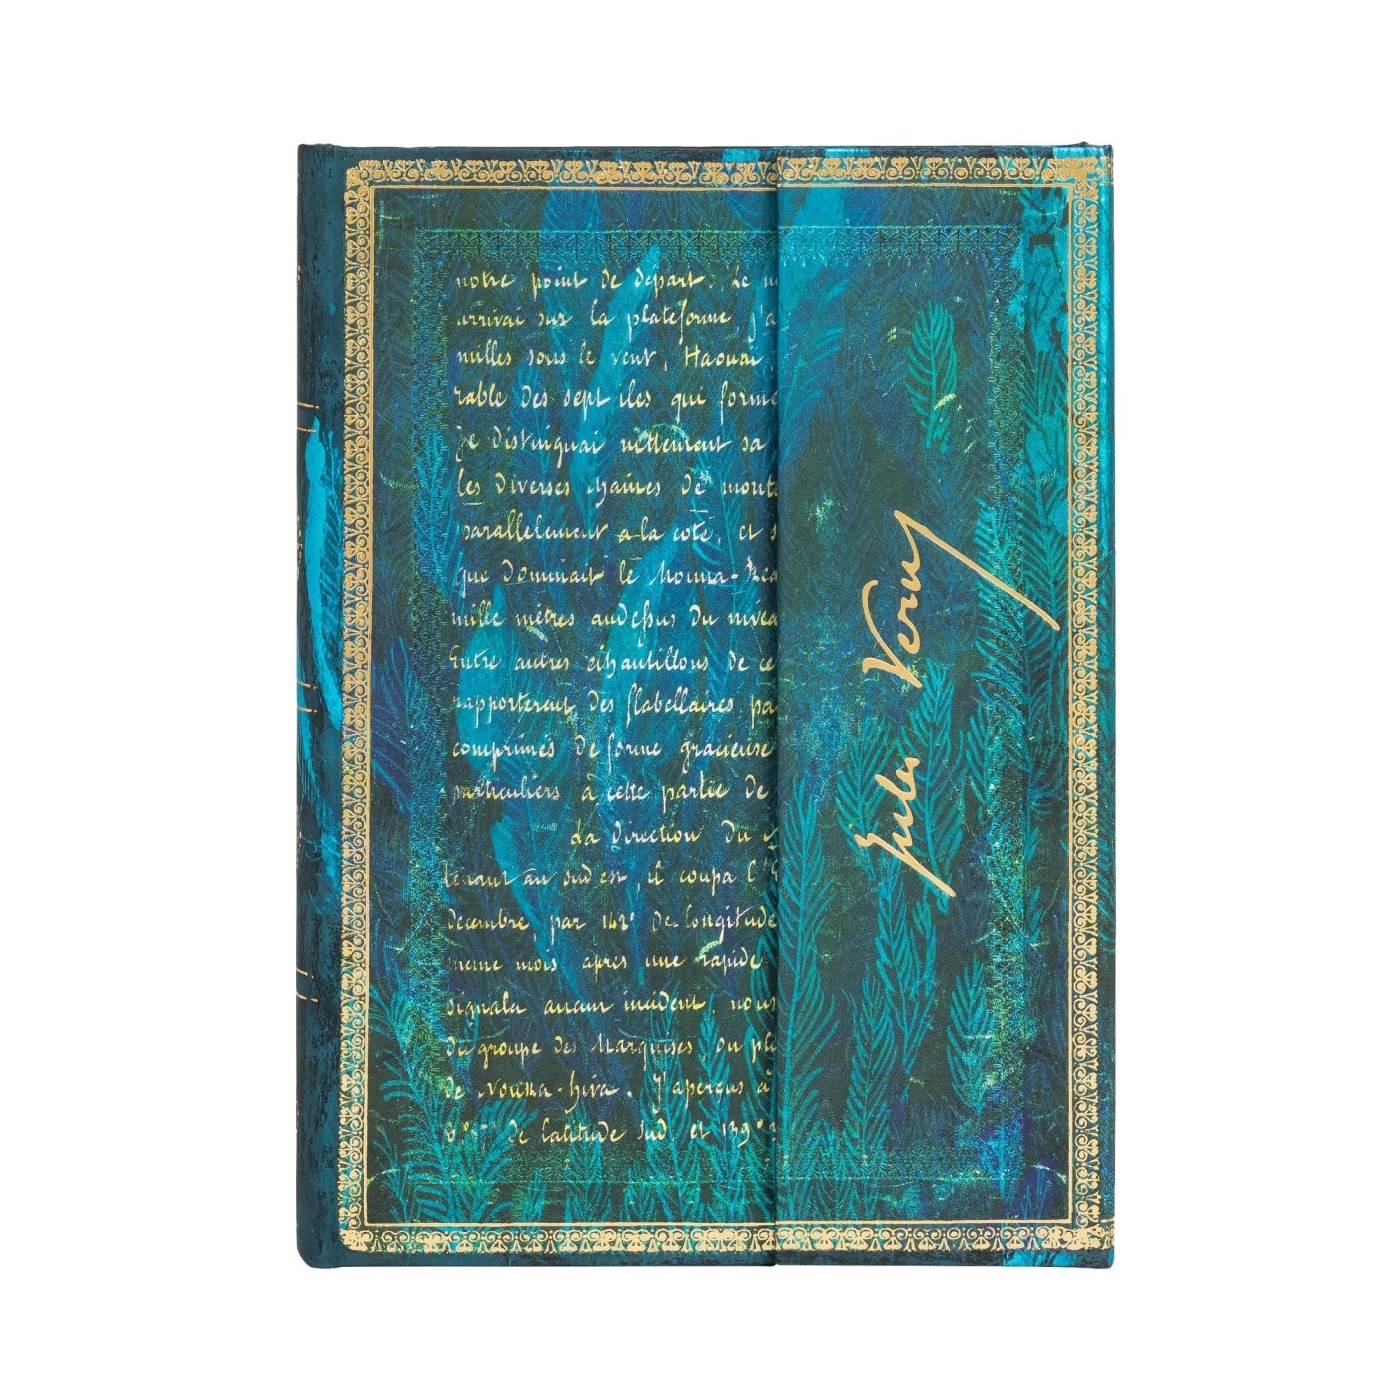 notre point de départ. Le m
arrivai sur la plateforme, j'a
milles sous le vent, Haouaï,
rable des sept iles qui forme
Je distinguai nettement sa
les diverses chaines de mont
parallelement a la cote, et s
que dominait le Mouna-Rea
mille mètres audessus du nivea
Entre autres échantillons de ce
rapporterent des flabellaires pa
comprimés de forme gracieuse
particuliers à cette partie de
La direction du
tenant au sud est, il coupa l'E
décembre, par 142° de longitude
meme mois après une rapide
signala aucun incident, nous
du groupe des Marquises, ou pl
de Nouka-hiva. J'aperçus à
8°57' de latitude sud, et 139°3
Jules Verne